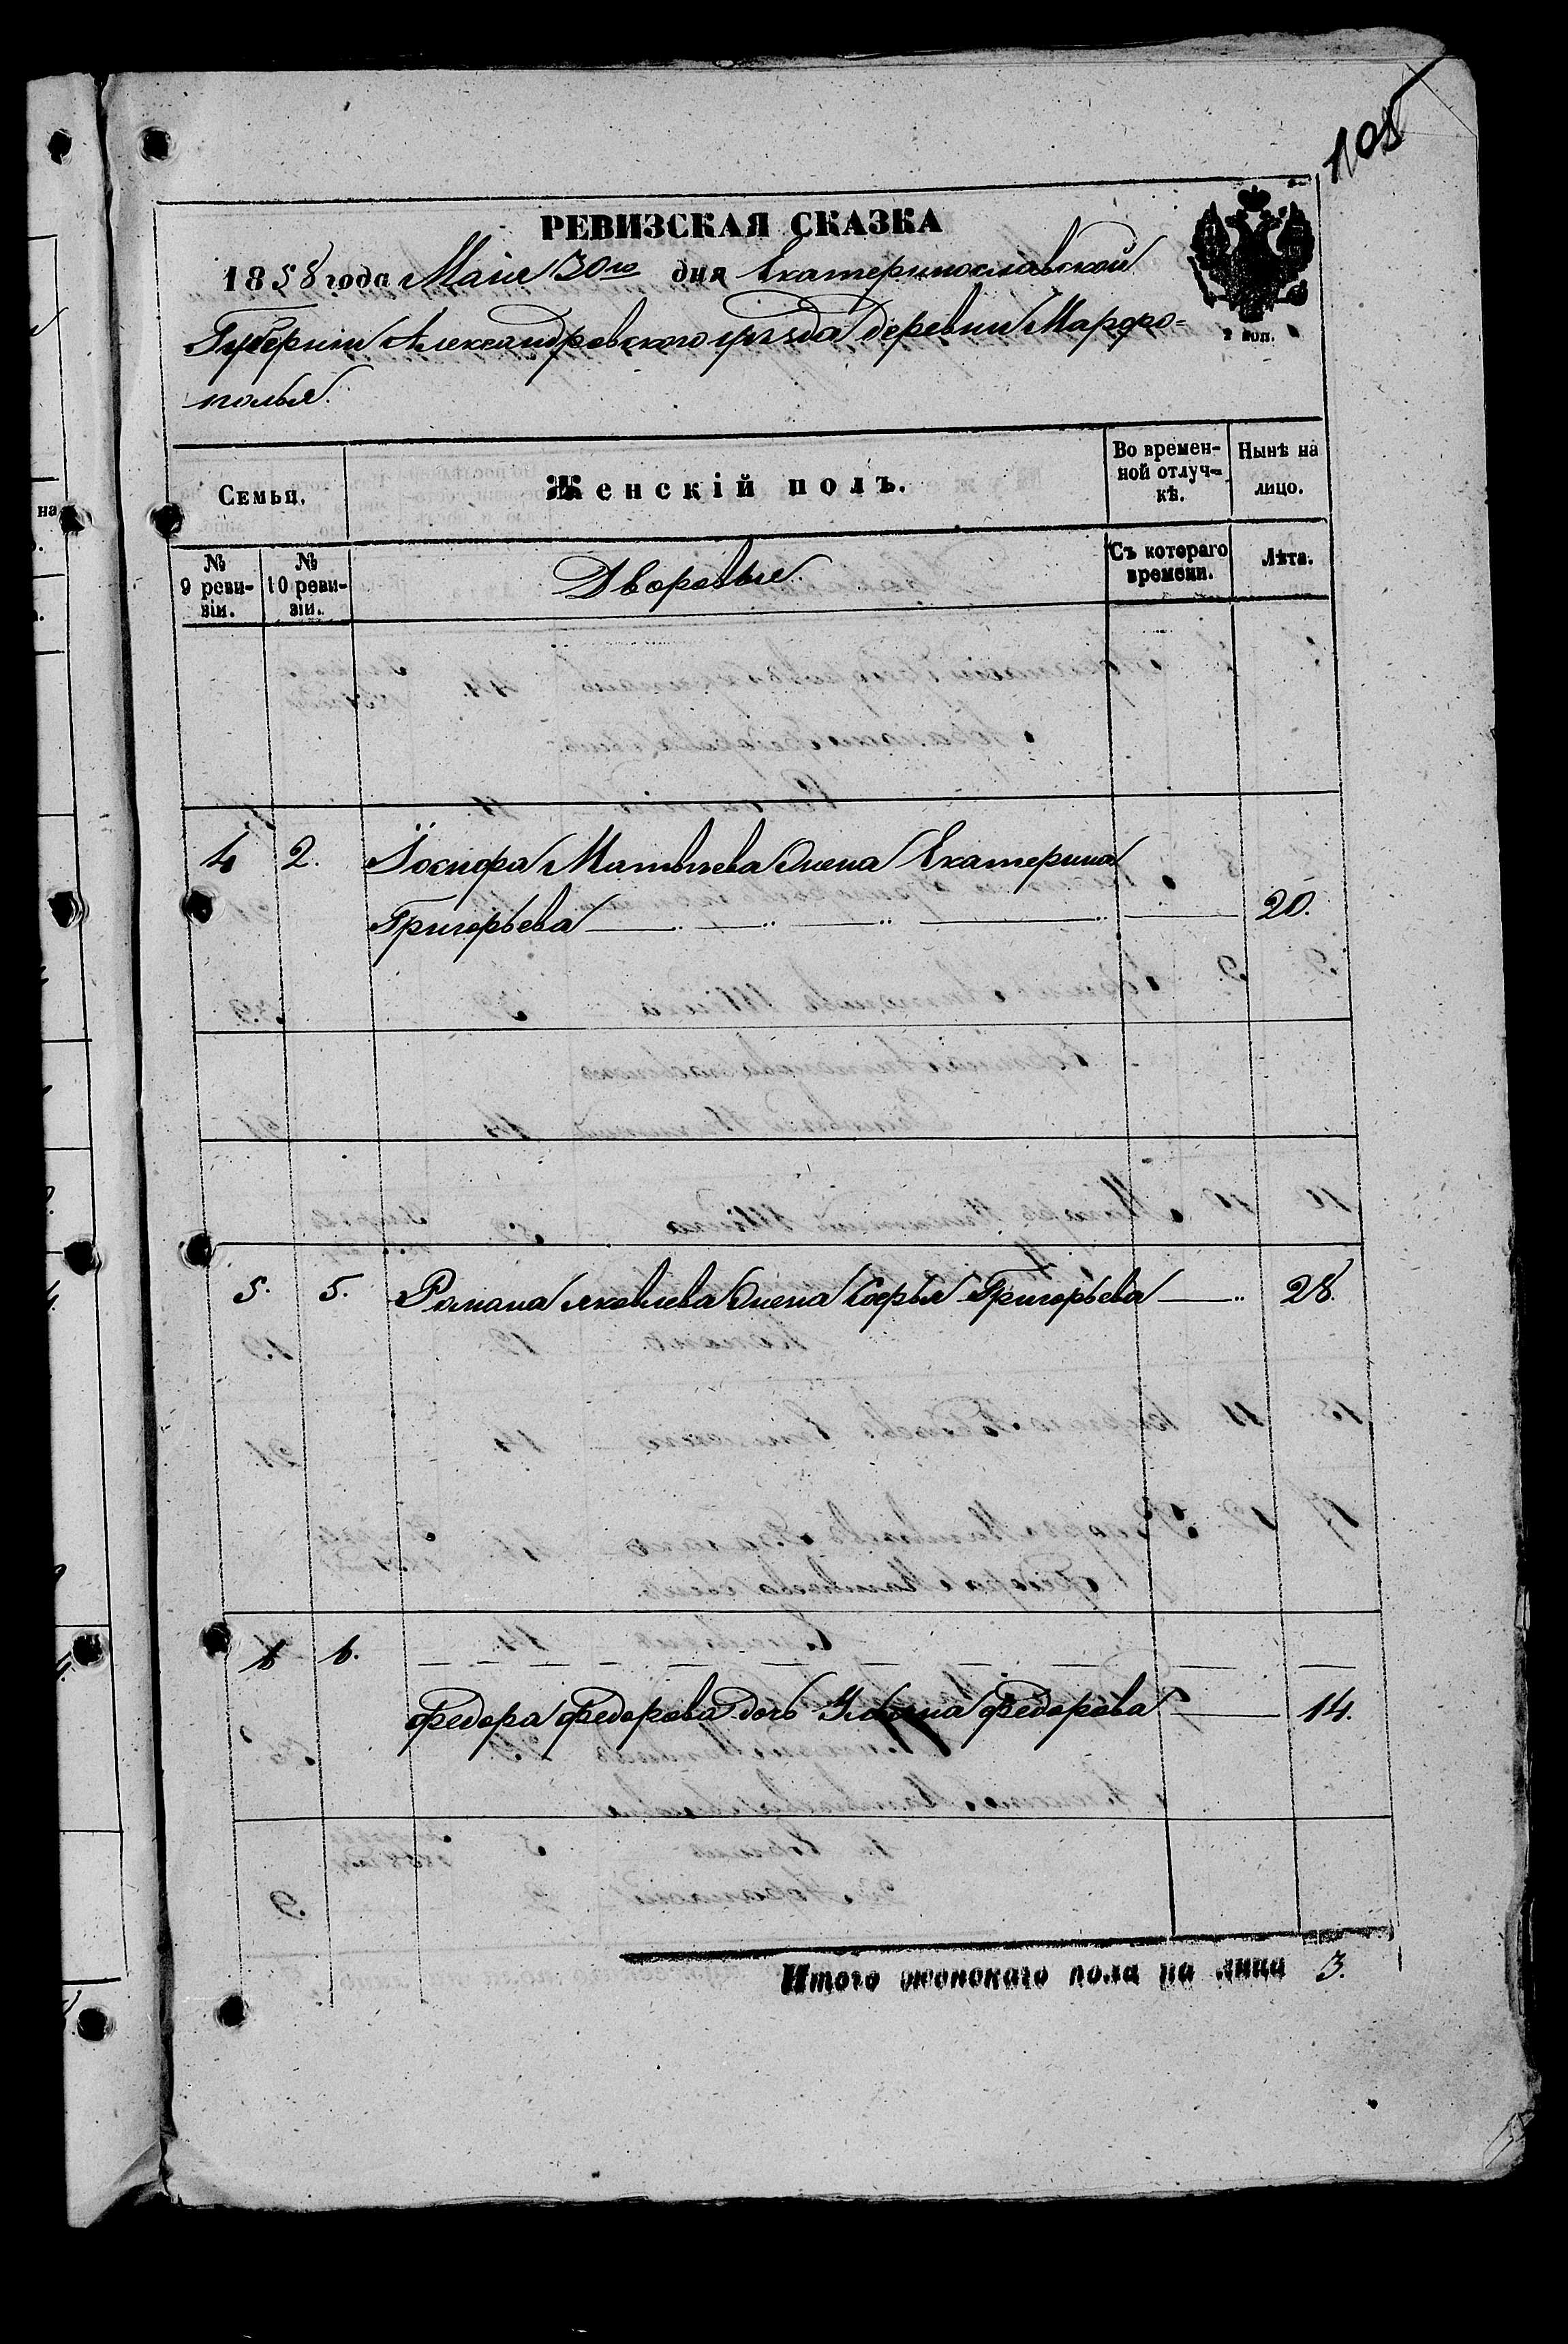 105
РЕВИЗСКАЯ СКАЗКА
1858 года Маiя 30го дня Екатеринославской
Губернiи Александровского уѣзда деревни Марфо-
полья.
2 коп.
Семьи.
Женскiй полъ.
Во времен-
ной отлуч-
кѣ.
Нынѣ на
лицо.
№
9 реви-
зiи.
№
10 реви-
зiи.
Дворовые.
Съ котораго
времени.
Лѣта.
4 2. Iосифа Матвѣева жена Екатерина
Григорьева 20.
5. 5. Романа Яковлева жена Софья Григорьева 28.
6 6.
Федора Федорова дочь Федорова 14.
Итого женскаго пола на лицо 3.
на